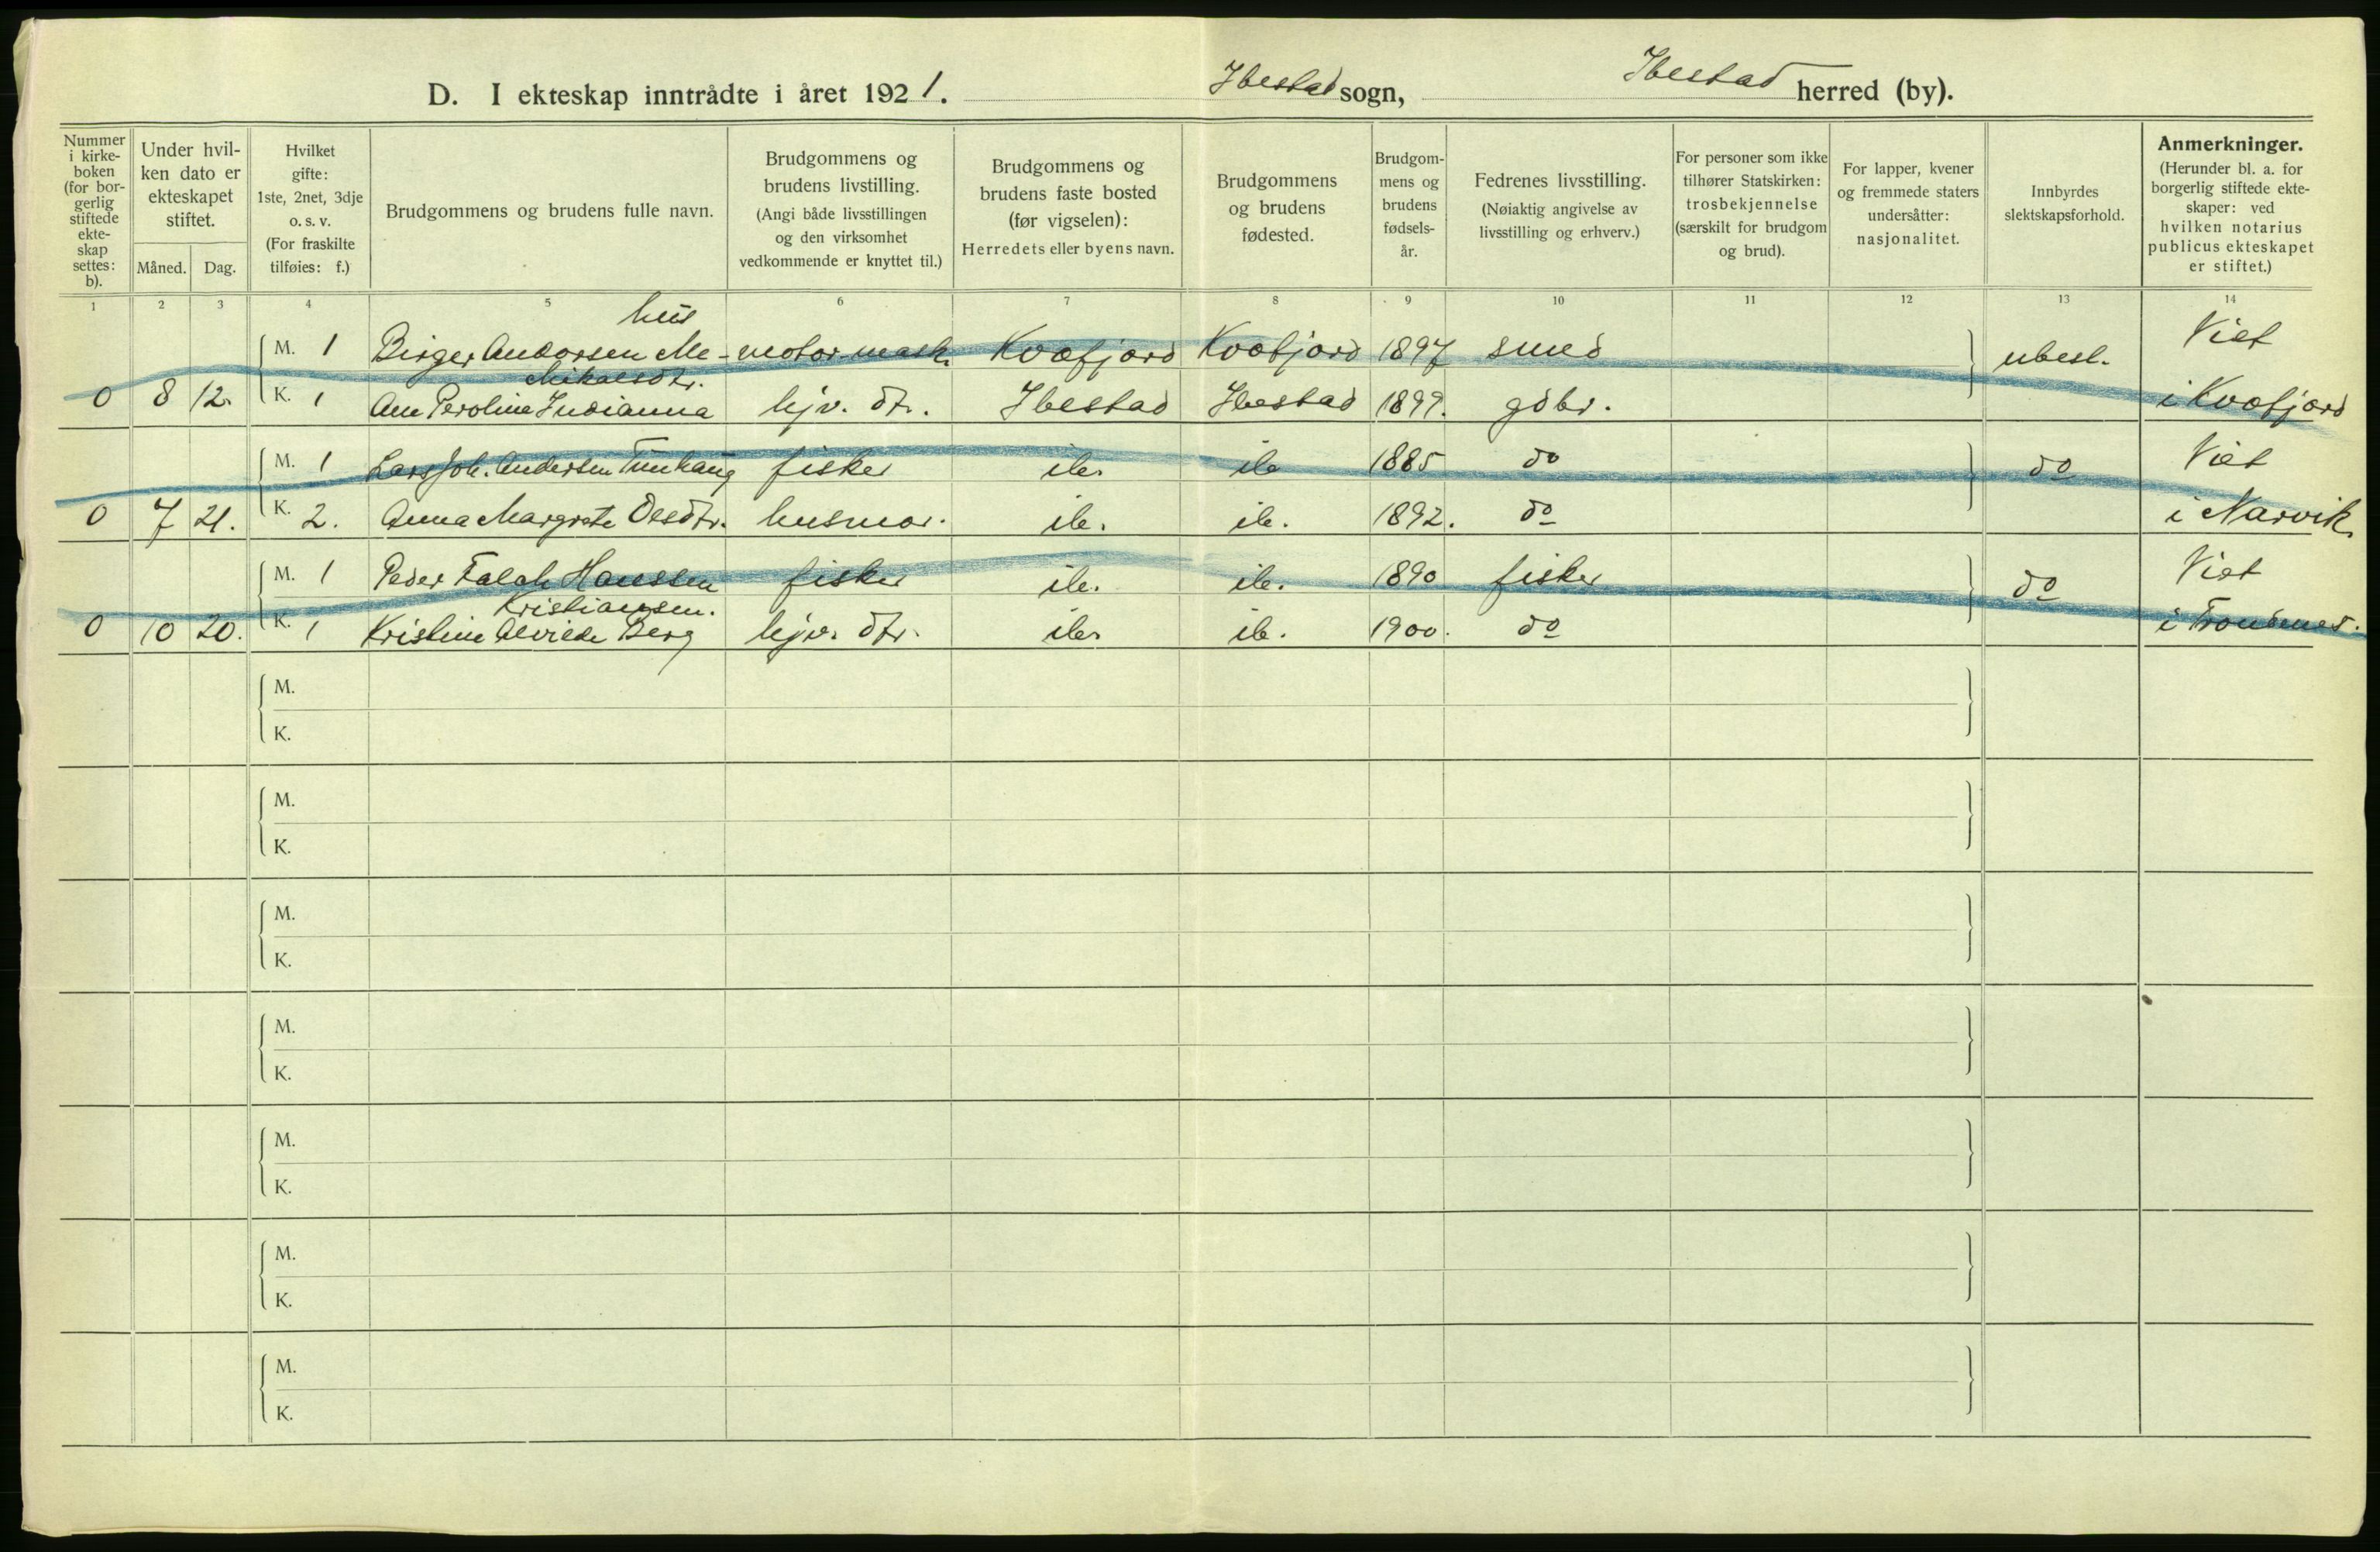 D. I ekteskap inntrådte i året 1921. Ibestad sogn, Ibestad herred (by).
Nummer i kirkeboken (for borgerlig stiftede ekteskap settes: b).
Under hvilken dato er ekteskapet stiftet.
Måned. Dag.
Hvilket gifte: 1ste, 2net, 3dje o. s. v. (For fraskilte tilføies: f.)
Brudgommens og brudens fulle navn.
Brudgommens og brudens livstilling. (Angi både livsstillingen og den virksomhet vedkommende er knyttet til.)
Brudgommens og brudens faste bosted (før vigselen): Herredets eller byens navn.
Brudgommens og brudens fødested.
Brudgommens og brudens fødselsår.
Fedrenes livsstilling. (Nøiaktig angivelse av livsstilling og erhverv.)
For personer som ikke tilhører Statskirken: trosbekjennelse (særskilt for brudgom og brud).
For lapper, kvener og fremmede staters undersåtter: nasjonalitet.
Innbyrdes slektskapsforhold.
Anmerkninger. (Herunder bl. a. for borgerlig stiftede ekteskaper: ved hvilken notarius publicus ekteskapet er stiftet.)
1 2 3 4 5 6 7 8 9 10 11 12 13 14
hus
M. 1 Birger Andorsen Me- motor-mask. Kvæfjord Kvæfjord 1897 smed ubesl. Viet
Mikalsdtr.
0 8 12. K. 1 Ane Peroline Indianna hjv. dtr. Ibestad Ibestad 1899. gdbr. i Kvæfjord
M. 1 Lars Joh. Andersen Tunhaug fisker ib. ib 1885 do do Viet
0 7 21. K. 2. Anna Margrete Olsdtr. husmor. ib. ib. 1892. do i Narvik.
M. 1 Peder Falch Hanssen fisker ib. ib. 1890 fisker do Viet
Kristiansen.
0 10 20. K. 1 Kristine Alvilde Berg hjv. dtr. ib. ib. 1900. do i Trondenes.
M.
K.
M.
K.
M.
K.
M.
K.
M.
K.
M.
K.
M.
K.